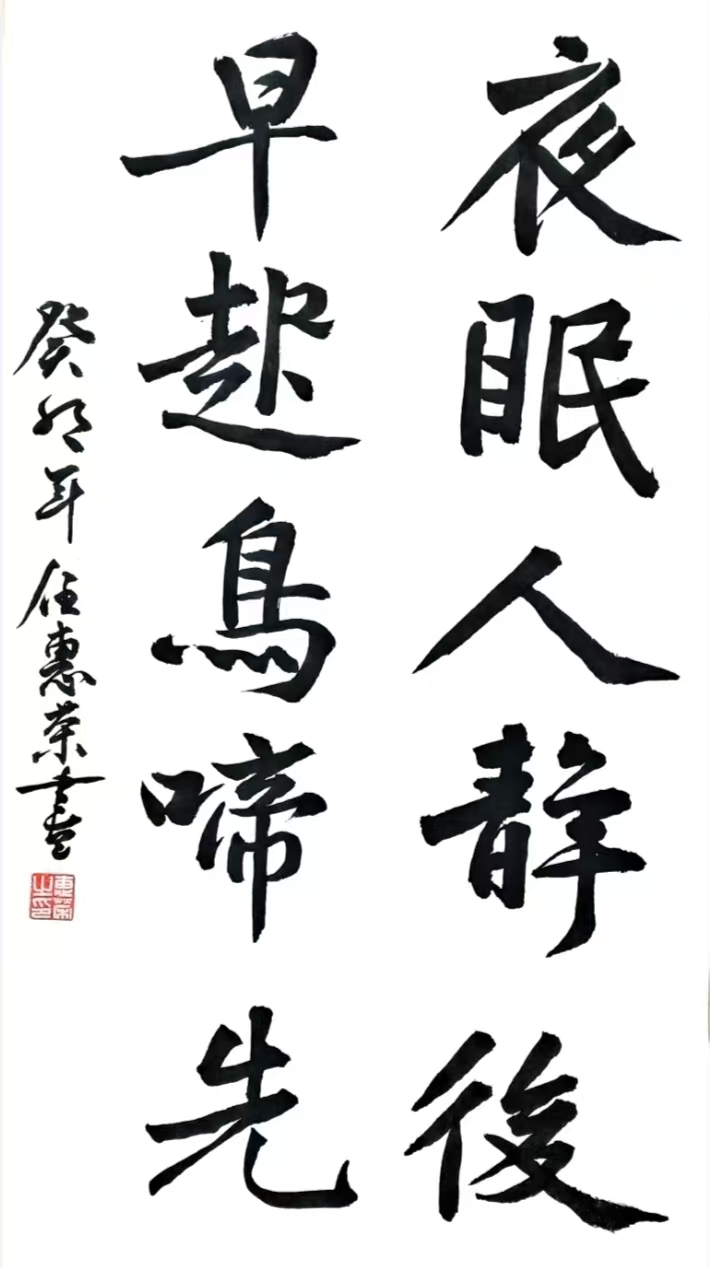 夜眠人静後
早起鳥啼先
癸卯年任惠荣書
惠荣之印